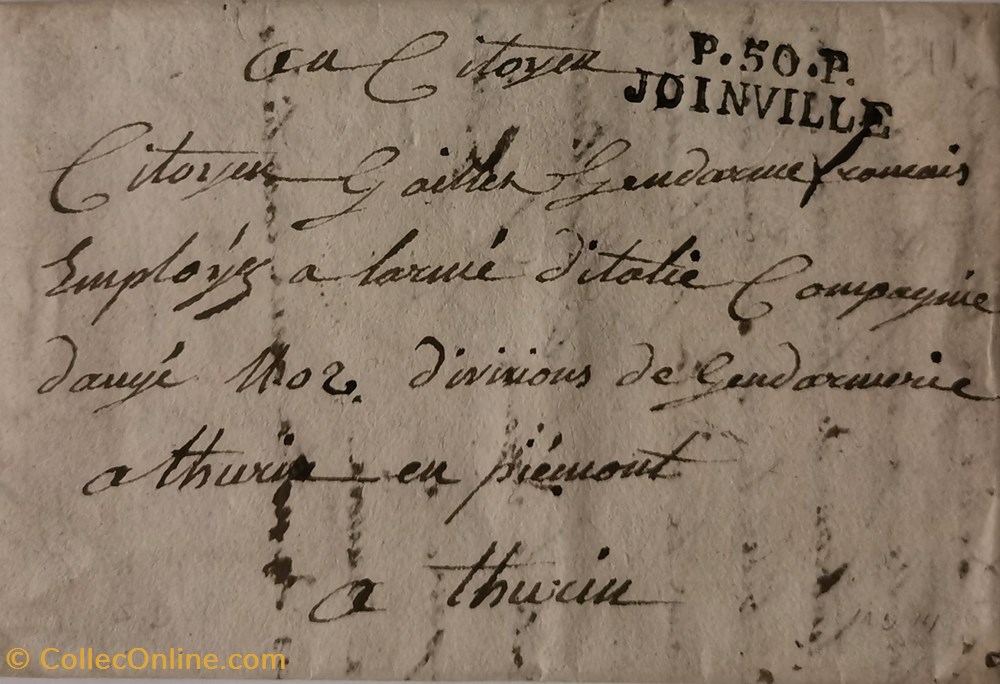 au Citoyen
P.50.P.
JOINVILLE
Citoyen Gendarme francais
Employéz a larmé ditalie Compagnie
dangé divisions de Gendarmerie
a thurin en piémont
a thurin
© CollecOnline.com